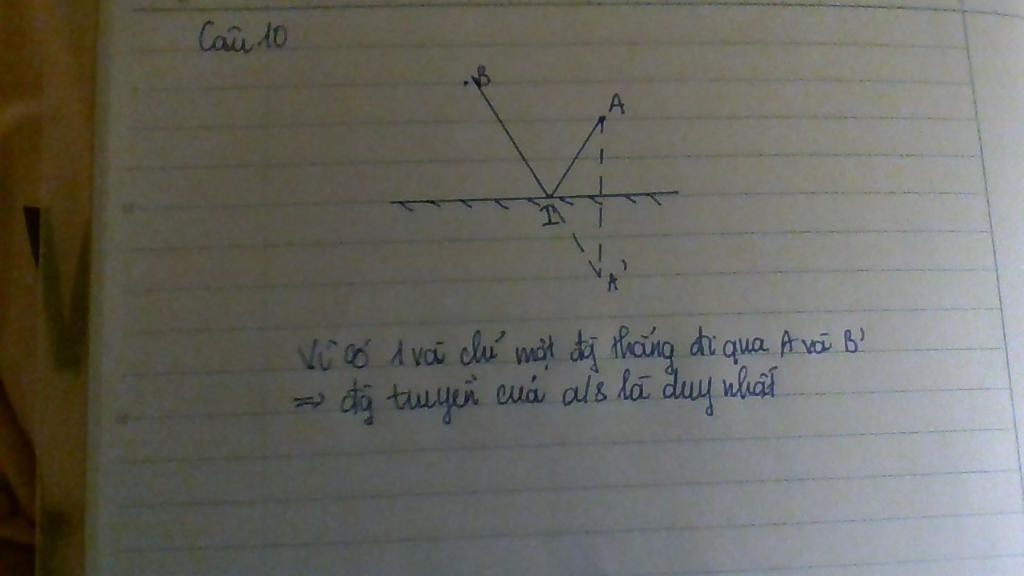 Câu 10
B
A
I
A'
Vì có 1 và chỉ một đg thẳng đi qua A và B'
=> đg truyền của a/s là duy nhất